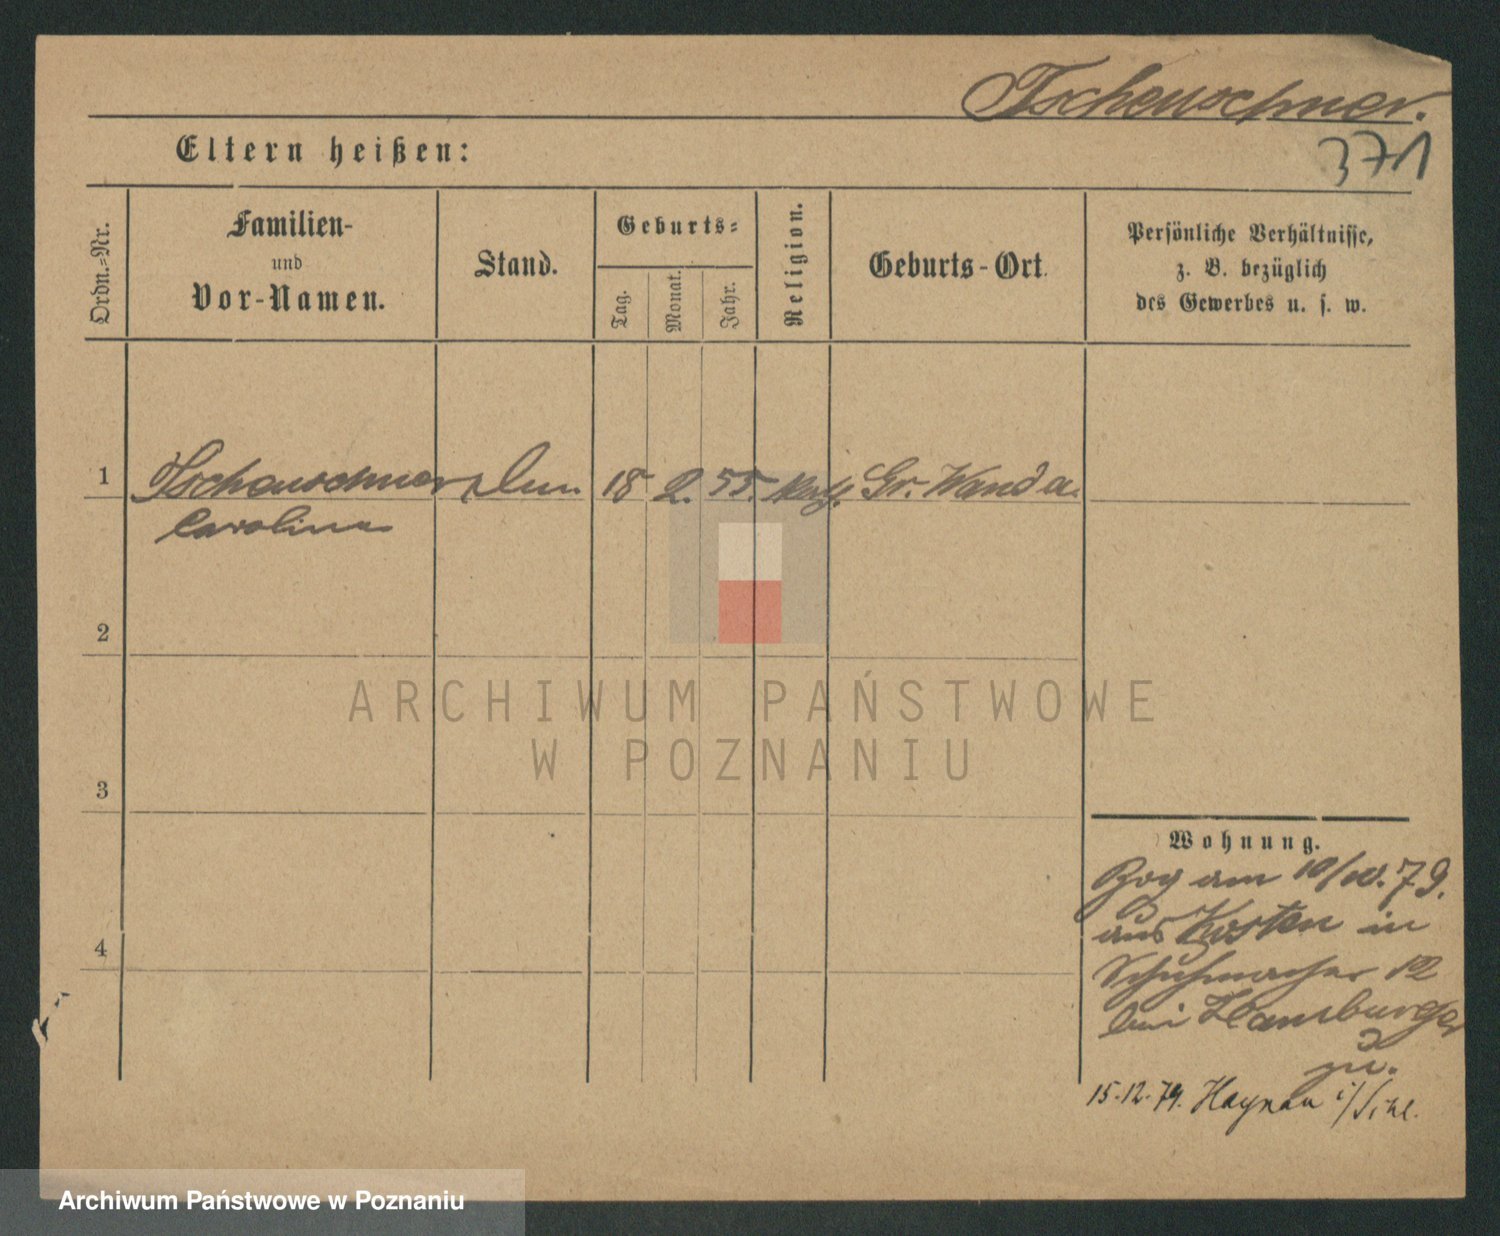 Tscheuschner.
371
Eltern heißen:
Ordn.-Nr.
Familien-
und
Vor-Namen.
Stand.
Geburts-
Tag.
Monat.
Jahr.
Religion.
Geburts-Ort.
Persönliche Verhältnisse,
z. B. bezüglich
des Gewerbes u. s. w.
1
Tscheuschner 18 2. 55. Gr. Wanda.
Carolina
2
3
4
ARCHIWUM PAŃSTWOWE
W POZNANIU
Wohnung.
Zog am 10/10. 79.
aus Kosten in
Schuhmacher 12
bei Hamburger
zu.
15.12.79. Haynau i/Schl.
Archiwum Państwowe w Poznaniu